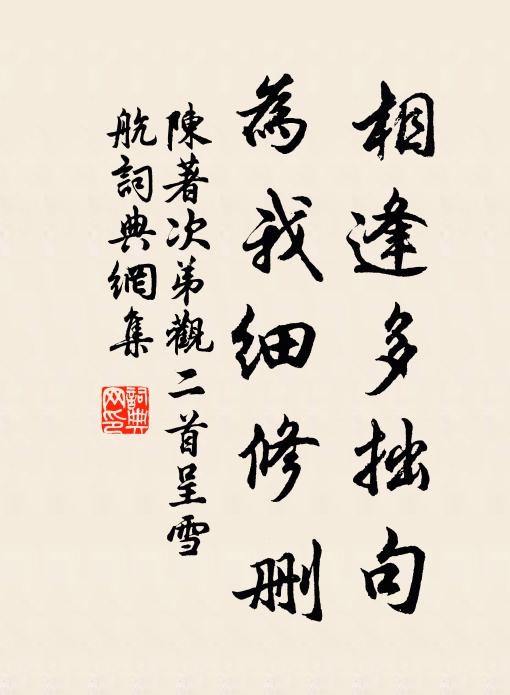 相逢多拙句
為我細修刪
陳著次弟觀二首呈雪
航詞典網集
詞典網印